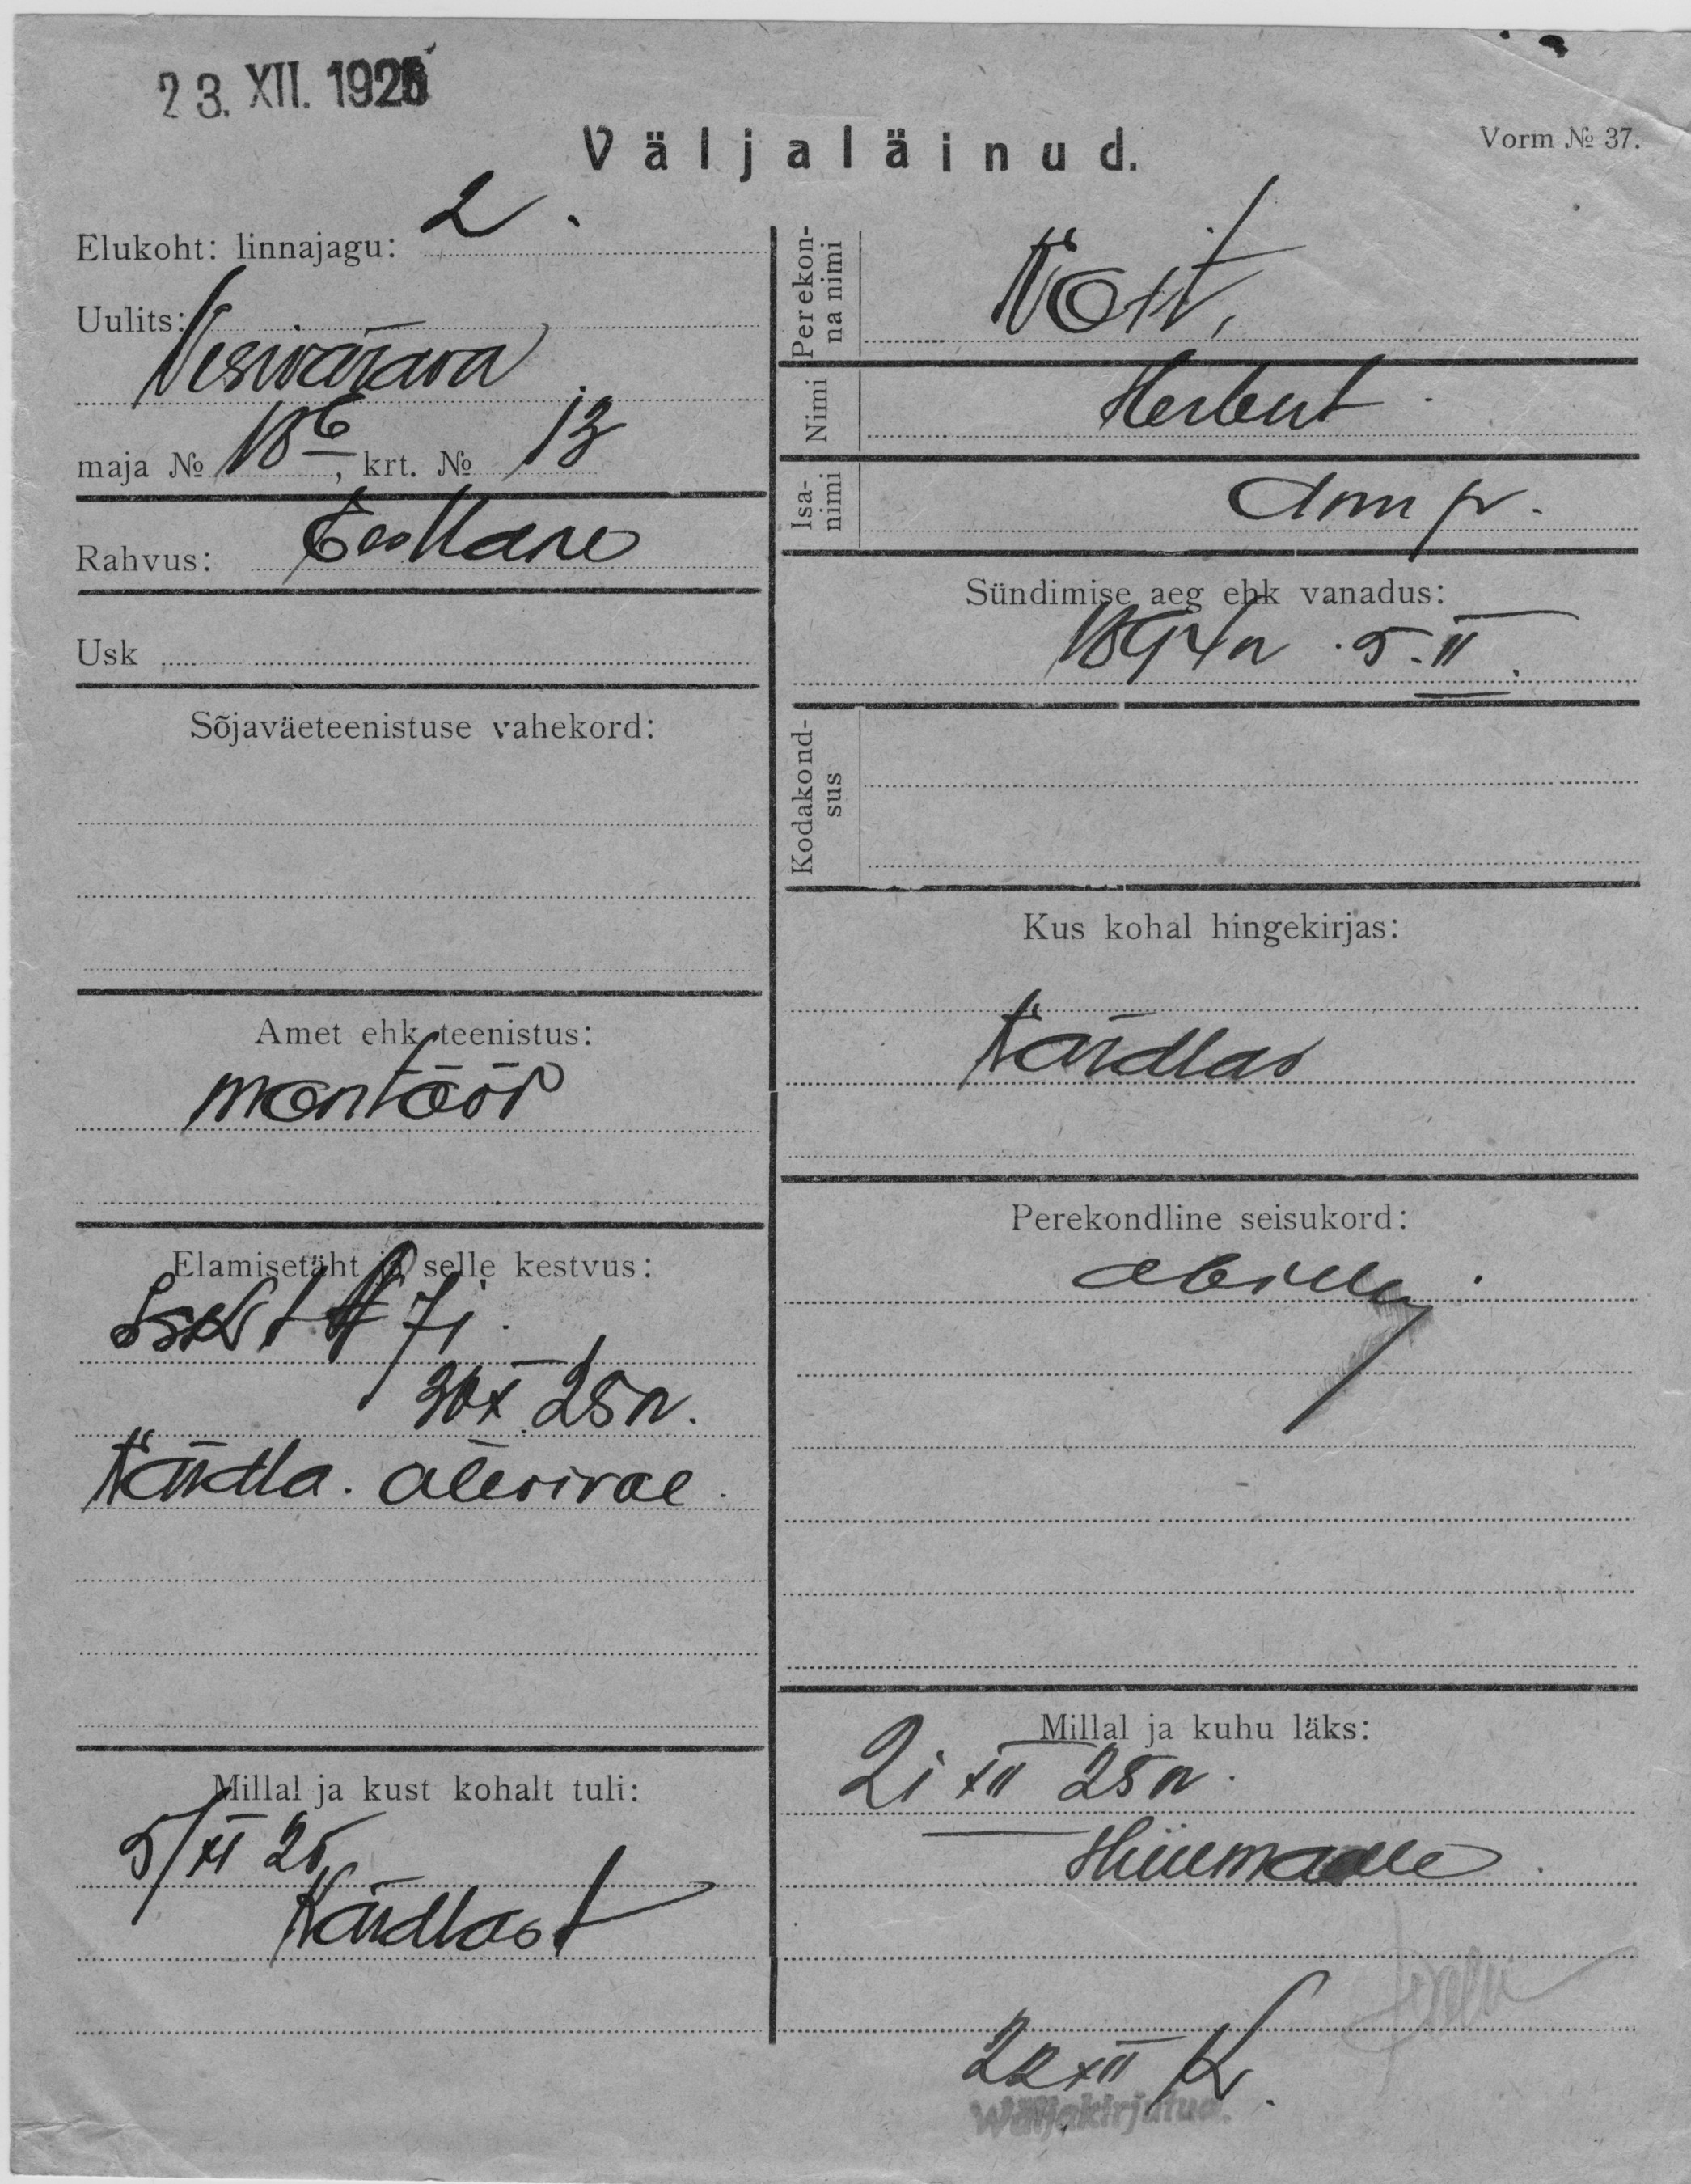 23. XII. 1925
Väljaläinud.
Vorm № 37.
Elukoht: linnajagu: 2.
Uulits:
Weswärava
maja № 18 6, krt. № 13
Rahvus: Eestlane
Usk
Sõjaväeteenistuse vahekord:
Amet ehk teenistus:
montöör
Elamisetäht ja selle kestvus:
71.
XI 25 a.
Kärdla. alevival
Millal ja kust kohalt tuli:
5/XI 25
Kärdlast
Perekon-
na nimi
Noit,
Nimi
Herbert
Isa-
nimi
Ann p.
Sündimise aeg ehk vanadus:
5. II.
Kodakond-
sus
Kus kohal hingekirjas:
Kärdlas
Perekondline seisukord:
abielus
Millal ja kuhu läks:
21 XII 25 a.
Hiiumaale
22 XII
Wäljakirjutud.